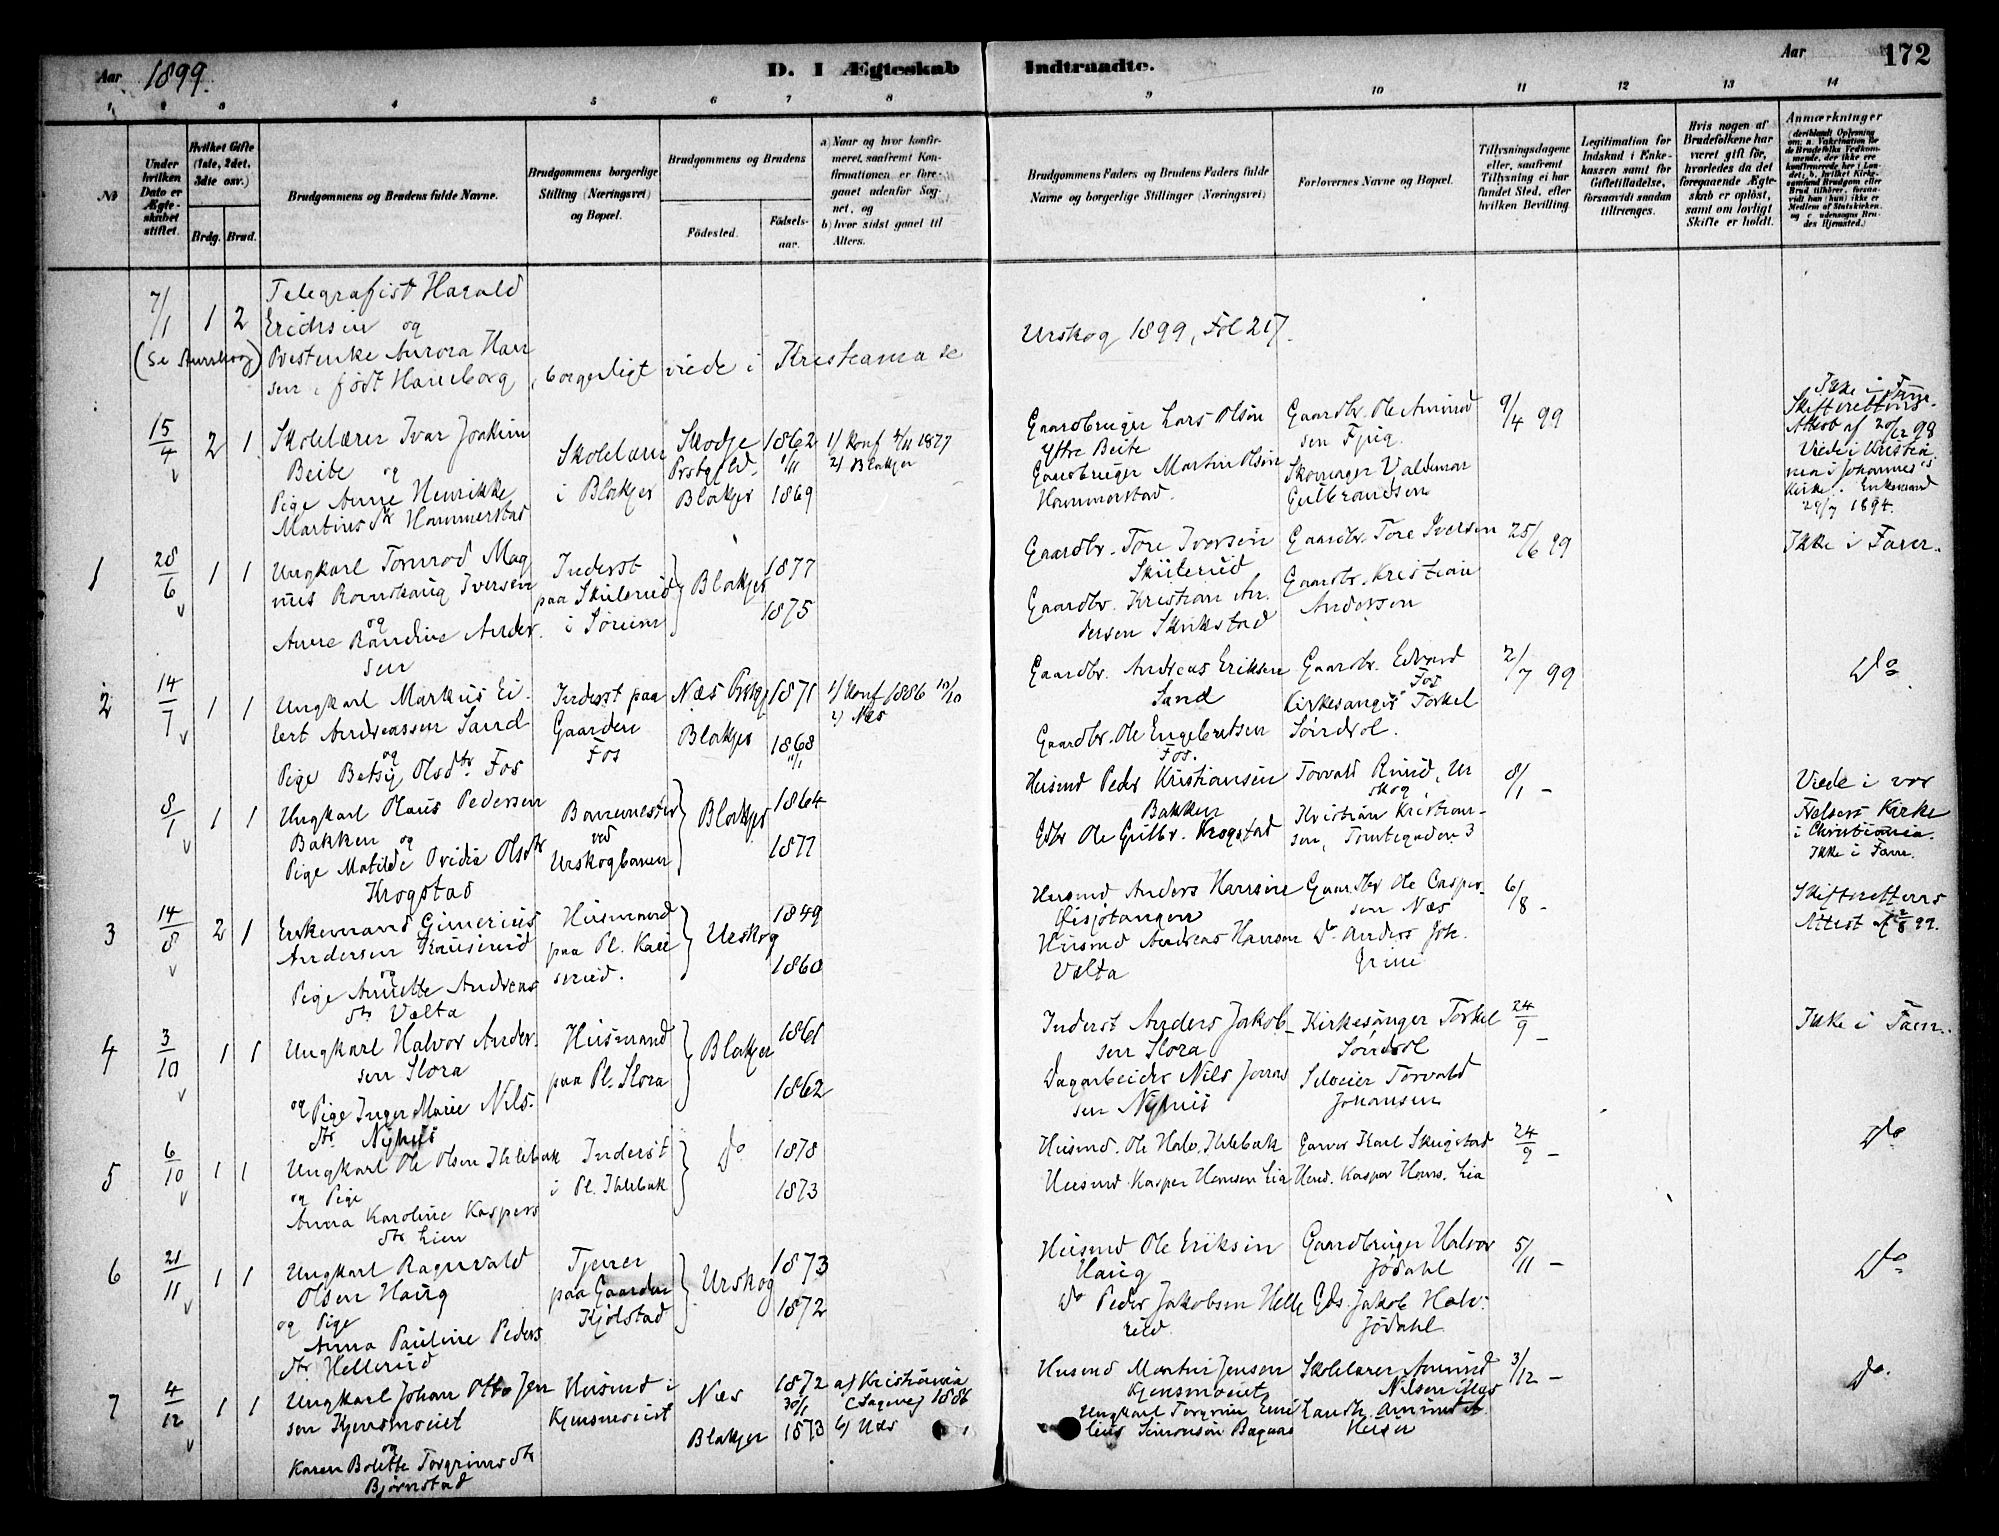 Aar 1899.
D. I Ægteskab Indtraadte.
Aar 172
1 2 3 4 5 6 7 8 9 10 11 12 13 14
№
Under hvilken Dato er Ægteskabet stiftet.
Hvilket Gifte (1ste, 2det, 3die osv.)
Brdg. Brud.
Brudgommens og Brudens fulde Navne.
Brudgommens borgerlige Stilling (Næringsvei) og Bopæl.
Brudgommens og Brudens
Fødested. Fødselsaar.
a) Naar og hvor konfirmeret, saafremt Konfirmationen er foregaaet udenfor Sognet, og
b) hvor sidst gaaet til Alters.
Brudgommens Faders og Brudens Faders fulde Navne og borgerlige Stillinger (Næringsvei)
Forlovernes Navne og Bopæl.
Tillysningsdagene eller, saafremt Tillysning ei har fundet Sted, efter hvilken Bevilling.
Legitimation for Indskud i Enkekassen samt for Giftetilladelse, forsaavidt saadan tiltrænges.
Hvis nogen af Brudefolkene har været gift før, hvorledes da det foregaaende Ægteskab er opløst, samt om lovligt Skifte er holdt.
Anmærkninger
7/1 1 2
Telegrafist Harald
Erichsen og
(se Aurskog) Prestenke Aurora Han
sen, født Haneborg, borgerligt viede i Kristiania se
Urskog 1899, Fol 217.
15/4 2 1
Skolelærer Ivar Joakim
Beite og
Pige Anne Henrikke
Martinusdtr Hammerstad
Skolelærer
i Blakjer
Skodje
Prstgjld.
Blakjer
1862
1/11
1869
1/ Konf 4/11 1877
2/ Blakjer
Gaardbruger Lars Olsen
Ytre Beite
Gaardbruger Martin Olsen
Hammerstad.
Gaardbr. Ole Amund
sen Fjug.
Skomager Valdemar
Gulbrandsen
9/4 99
Ikke i Fam.
Skifterettens
Attest af 20/12 98
Viede i Kristia
nia i Johannes's
Kirke. Enkemand
29/7 1894.
1 28/6 1 1
Ungkarl Tormod Mag
nus Romskaug Iversen
og
Anne Randine Ander
sen
Inderst
paa Skulerud
i Søreim
Blakjer
1877
1875
Gaardbr. Tore Iversen
Skulerud
Gaardbr. Kristian An.
dersen Skrikstad
Gaardbr. Tore Iversen
Gaardbr. Kristian
Andersen
25/6 99
Ikke i Fam.
2 14/7 1 1
Ungkarl Markus Ei
lert Andreassen Sand
og
Pige Betsy Olsdtr. Fos
Inderst paa
Gaarden
Fos
Næs Prstgj
Blakjer
1871
1868
11/1
1/ Konf 1886 10/10
2/ Næs
Gaardbr. Andreas Eriksen
Sand
Gaardbr. Ole Engebretsen
Fos.
Gaardbr. Edvard
Fos
Kirkesanger Torkel
Søndrol.
2/7 99
Do
8/1 1 1
Ungkarl Olaus Pedersen
Bakken og
Pige Matilde Ovidia Olsdtr
Krogstad
Banemester
ved
Urskogbanen
Blakjer
1864
1877
Husmd Peder Kristiansen
Bakken
Gdbr Ole Gulbr. Krogstad
Torvald Rund, Ur
skog
Kristian Kristian-
sen, Tomtegaden 3
8/1 –
Viede i vor
Frelsers Kirke
i Christiania.
Ikke i Fam.
3 14/8 2 1
Enkemand Gunerius
Andersen Kauserud
og
Pige Annette Andreas
dtr Vælta
Husmand
paa Pl. Kau
serud.
Urskog
1849
1860
Husmd Anders Hansen
Øisjøtangen
Husmd Andreas Hansen
Vælta
Gaardbr Ole Casper-
sen Næs
Do Anders Joh.
6/8 –
Skifterettens
Attest af 2/8 99.
4 3/10 1 1
Ungkarl Halvor Ander.
sen Slora
og Pige Inger Marie Nils.
dtr. Nyhus
Husmand
paa Pl. Slora
Blakjer
1861
1862
Inderst Anders Jakob-
sen Slora
Dagarbeider Nils Jonas
sen Nyhus
Kirkesanger Torkel
Søndrol
Seloeier Torvald
Johansen
24/9 –
Ikke i Fam.
5 6/10 1 1
Ungkarl Ole Olsen Ihlebæk
og Pige
Anna Karoline Kaspers
dtr Lien
Inderst
i Pl. Ihlebæk
Do
1878
1873
Husmd. Ole Halv. Ihlebæk
Husmd Kasper Hansen Lia
Garver Karl Skugstad
Husd. Kasper Hans. Lia
24/9 –
Do
6 21/11 1 1
Ungkarl Ragnvald
Olsen Haug
og Pige
Anna Pauline Peders
dtr Hellerud
Tjener
paa Gaarden
Kjølstad
Urskog
1873
1872
Husmd Ole Eriksen
Haug
Do Peder Jakobsen Helle
rud.
Gaardbruger Halvor
Jødahl
Gds. Jakob Halv.
Jødahl
5/11 –
Do
7 4/12 1 1
Ungkarl Johan Otto Jen
sen Kjensmoeiet
og
Karen Bolette Torgrimsdtr
Bjørnstad
Husmd i
Kjensmoeiet
Næs
Blakjer
1872
30/1
1873
a/ Kristiania
(Sagene) 1886
b/ Næs
Husmd Martin Jensen
Kjensmoeiet
Ungkarl Torgrim Emi
lius Simonsen Bagaas
Skolelærer Amund
Nilsen Næs
Landh. Amund A.
3/12 –
Do.